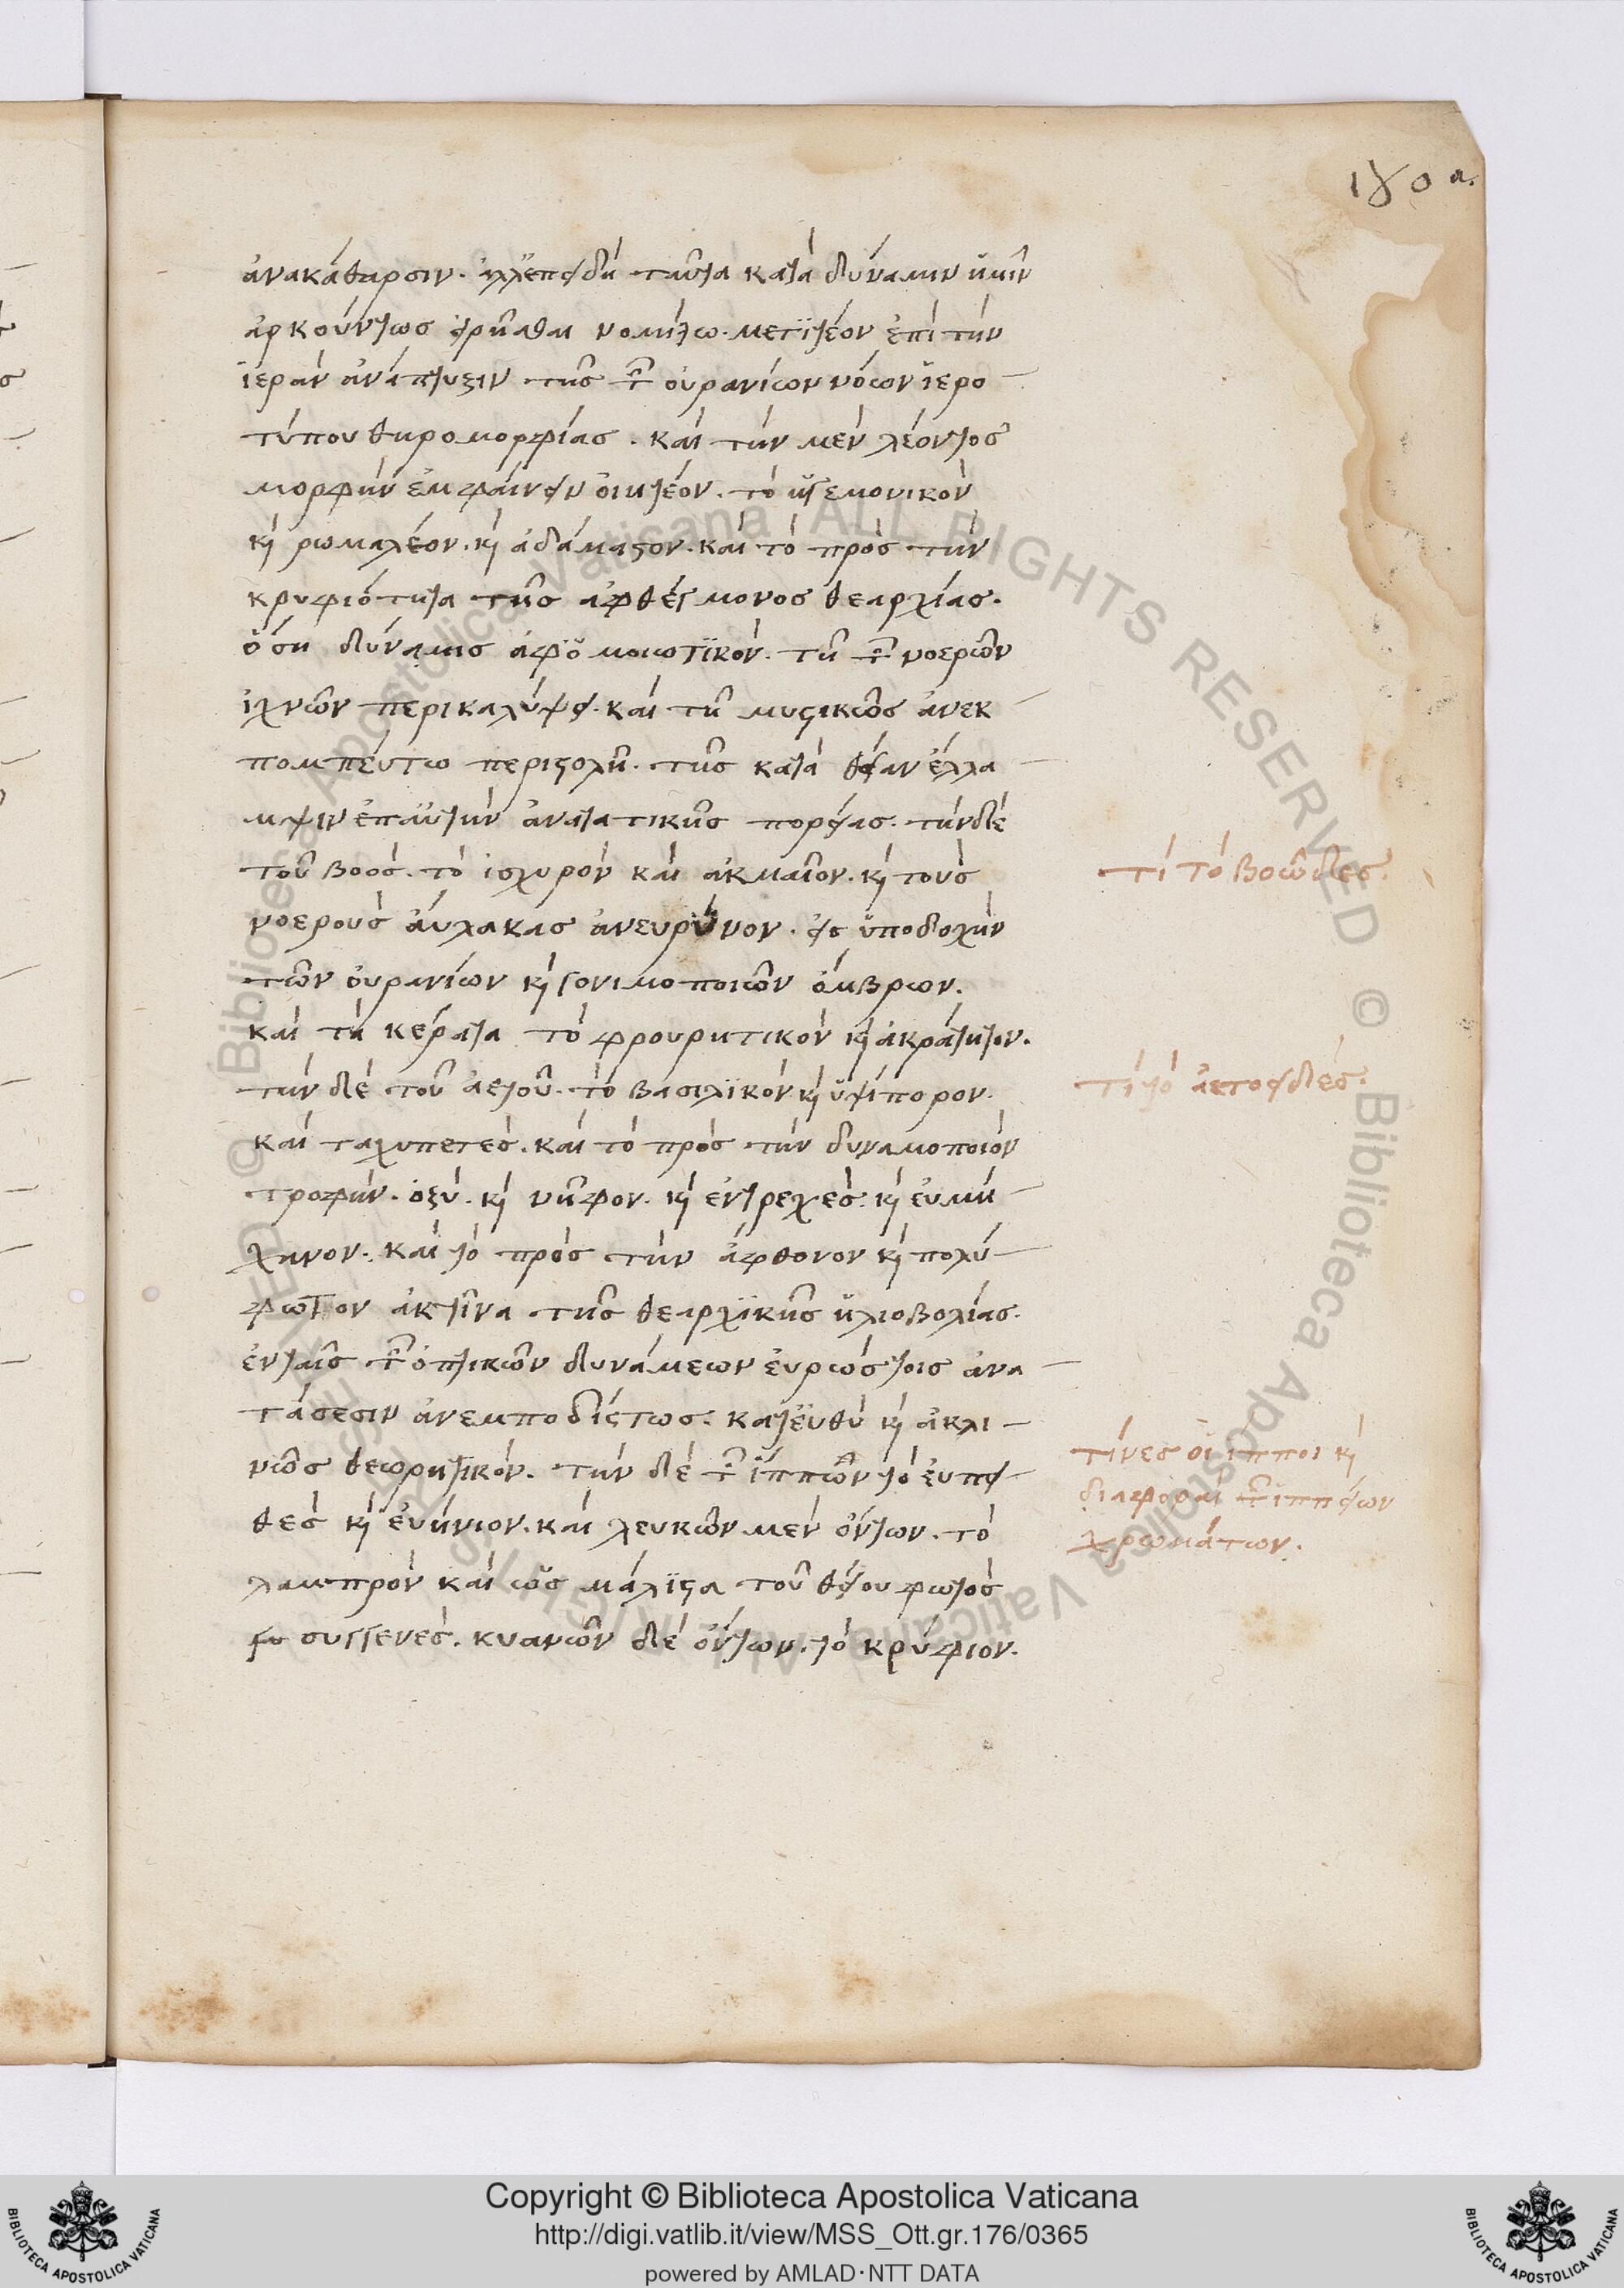 180 a.
ἀνακάθαρσιν. ἀλλ' ἐπειδὴ ταῦτα κατὰ δύναμιν ἡμῖν
ἀρκούντως εἰρῆσθαι νομίζω. μετϊτέον ἐπὶ τὴν
ἱερὰν ἀνάπτυξιν τῆς τῶν οὐρανίων νόων ἱερο
τύπου θηρομορφίας. καὶ τὴν μὲν λέοντος
μορφὴν ἐμφαίνειν οἰητέον. τὸ ἡγεμονικὸν
κὶ ρωμαλέον. κὶ ἀδάμαστον. καὶ τὸ πρὸς τὴν
κρυφιότητα τῆς ἀφθέγμονος θεαρχίας.
ὅση δύναμις ἀφομοιωτϊκὸν. τῆ τῶν νοερῶν
ἰχνῶν περικαλύψει. καὶ τῆ μυστικῶς ἀνεκ
πομπεύτω περιστολῆ. τῆς κατὰ θείαν ἔλλα
μψιν ἐπ' αὐτὴν ἀνατατικῆς πορείας. τὴν δὲ
τοῦ βοὸς. τὸ ἰσχυρὸν καὶ ἀκμαῖον. κὶ τοὺς
νοεροὺς αὔλακας ἀνευρῦνον. εἰς ὑποδοχὴν
τῶν οὐρανίων κὶ γονιμοποιῶν ὄμβρων.
καὶ τὰ κέρατα τὸ φρουρητικὸν κὶ ἀκράτητον.
τὴν δὲ τοῦ ἀετοῦ. τὸ βασιλϊκὸν κὶ ὑψίπορον.
καὶ ταχυπετὲς. καὶ τὸ πρὸς τὴν δυναμοποιὸν
τροφὴν. ὀξὺ. κὶ νῆφον. κὶ ἐντρεχὲς. κὶ εὐμή
χανον. καὶ τὸ πρὸς τὴν ἄφθονον κὶ πολύ
φωτον ἀκτῖνα τῆς θεαρχϊκῆς ἡλιοβολίας.
ἐν ταῖς τῶν ὀπτικῶν δυνάμεων εὐρώστοις ἀνα
τάσεσιν ἀνεμποδίστως. κατευθὺ κὶ ἀκλι
νῶς θεωρητικόν. τὴν δὲ τῶν ἵππων τὸ εὐπει
θὲς κὶ εὐήνιον. καὶ λευκῶν μὲν ὄντων. τὸ
λαμπρὸν καὶ ὡς μάλϊστα τοῦ θείου φωτὸς
συγγενὲς. κυανῶν δὲ ὄντων. τὸ κρύφιον.
τί τὸ βοῶδες.
τί τὸ ἀετοειδές.
τίνες οἱ ἵπποι κὶ
διαφοραὶ τῶν ἱππείων
χρωμάτων.
Copyright © Biblioteca Apostolica Vaticana
http://digi.vatlib.it/view/MSS_Ott.gr.176/0365
powered by AMLAD·NTT DATA